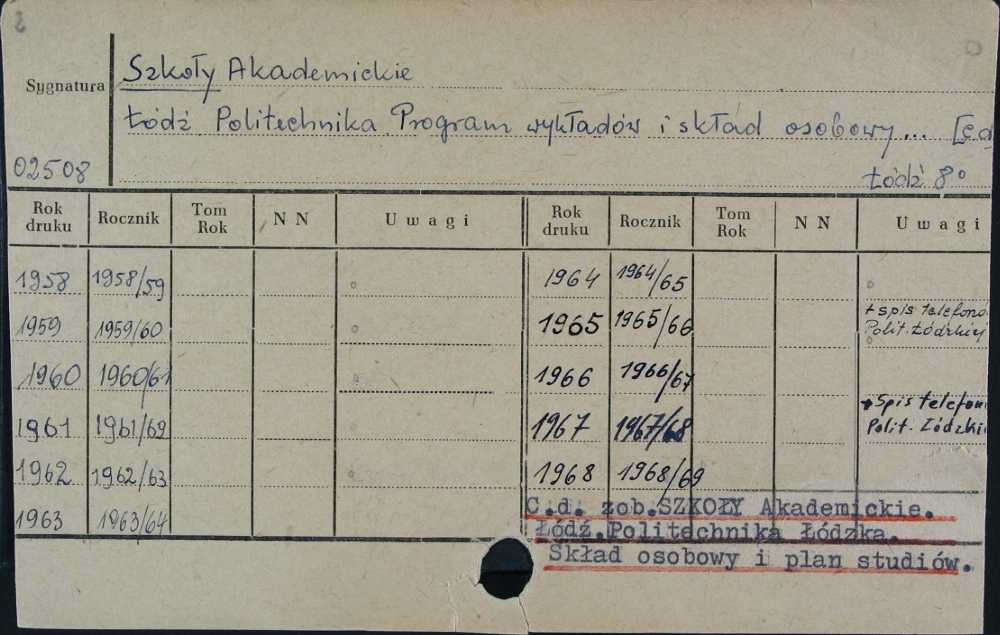 Sygnatura
Szkoły Akademickie
Łódź Politechnika Program wykładów i skład osobowy... [ed
02508
Łódź 8°
Rok druku Rocznik Tom Rok NN Uwagi Rok druku Rocznik Tom Rok NN Uwagi
1958 1958/59 1964 1964/65
1959 1959/60 1965 1965/66 + spis telefono
Polit. Łódzkiej
1960 1960/61 1966 1966/67
+ Spis telefon
1961 1961/62 1967 1967/68 Polit. Łódzkie
1962 1962/63 1968 1968/69
1963 1963/64
C.d. zob. SZKOŁY Akademickie.
Łódź. Politechnika Łódzka.
Skład osobowy i plan studiów.